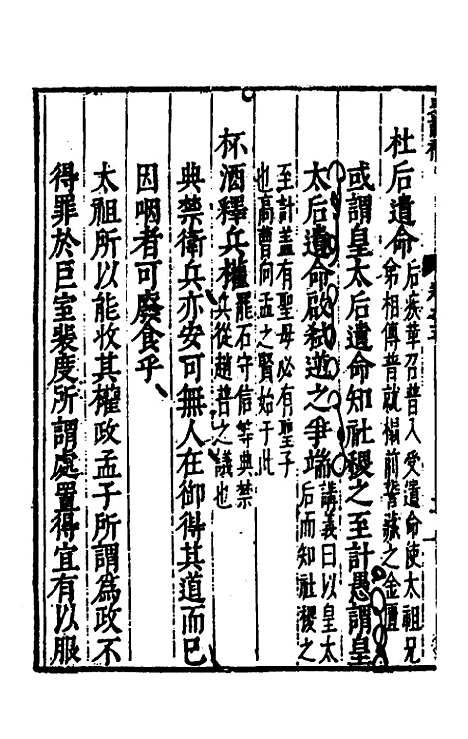 杜后遺命
后疾革召普入受遺命使太祖兄
弟相傳普就榻前誓藏之金匱
或謂皇太后遺命知社稷之至計愚謂皇
太后遺命啟弒逆之爭端
講義曰以皇太
后而知社稷之
至計蓋有聖母必有聖子
也高曹向孟之賢始于此
杯酒釋兵權
罷石守信等典禁
兵從趙普之議也
典禁衛兵亦安可無人在御得其道而已
因咽者可廢食乎、
太祖所以能收其權政孟子所謂為政不
得罪於巨室裴度所謂處置得宜有以服